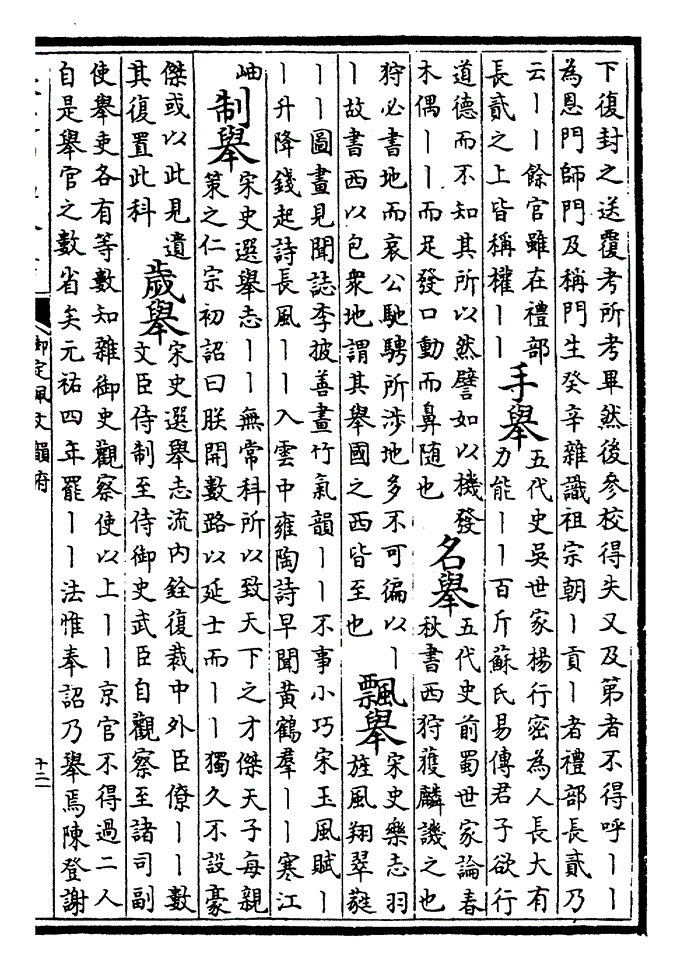 下復封之送覆考所考畢然後參校得失又及第者不得呼丨丨
為恩門師門及稱門生癸辛雜識祖宗朝丨貢丨者禮部長貳乃
云丨丨餘官雖在禮部
長貳之上皆稱權丨丨
手舉
五代史吳世家楊行密為人長大有
力能丨丨百斤蘇氏易傳君子欲行
道德而不知其所以然譬如以機發
木偶丨丨而足發口動而鼻隨也
名舉
五代史前蜀世家論春
秋書西狩獲麟譏之也
狩必書地而哀公馳騁所涉地多不可徧以丨
丨故書西以包衆地謂其舉國之西皆至也
飄舉
宋史樂志羽
旌風翔翠蕤
丨丨圖畫見聞誌李披善畫竹氣韻丨丨不事小巧宋玉風賦丨
丨升降錢起詩長風丨丨入雲中雍陶詩早聞黄鶴羣丨丨寒江
岫
制舉
宋史選舉志丨丨無常科所以致天下之才傑天子每親
策之仁宗初詔曰朕開數路以延士而丨丨獨久不設豪
傑或以此見遺
其復置此科
歲舉
宋史選舉志流内銓復裁中外臣僚丨丨數
文臣待制至侍御史武臣自觀察至諸司副
使舉吏各有等數知雜御史觀察使以上丨丨京官不得過二人
自是舉官之數省矣元祐四年罷丨丨法惟奉詔乃舉焉陳登謝
御定佩文韻府
十二